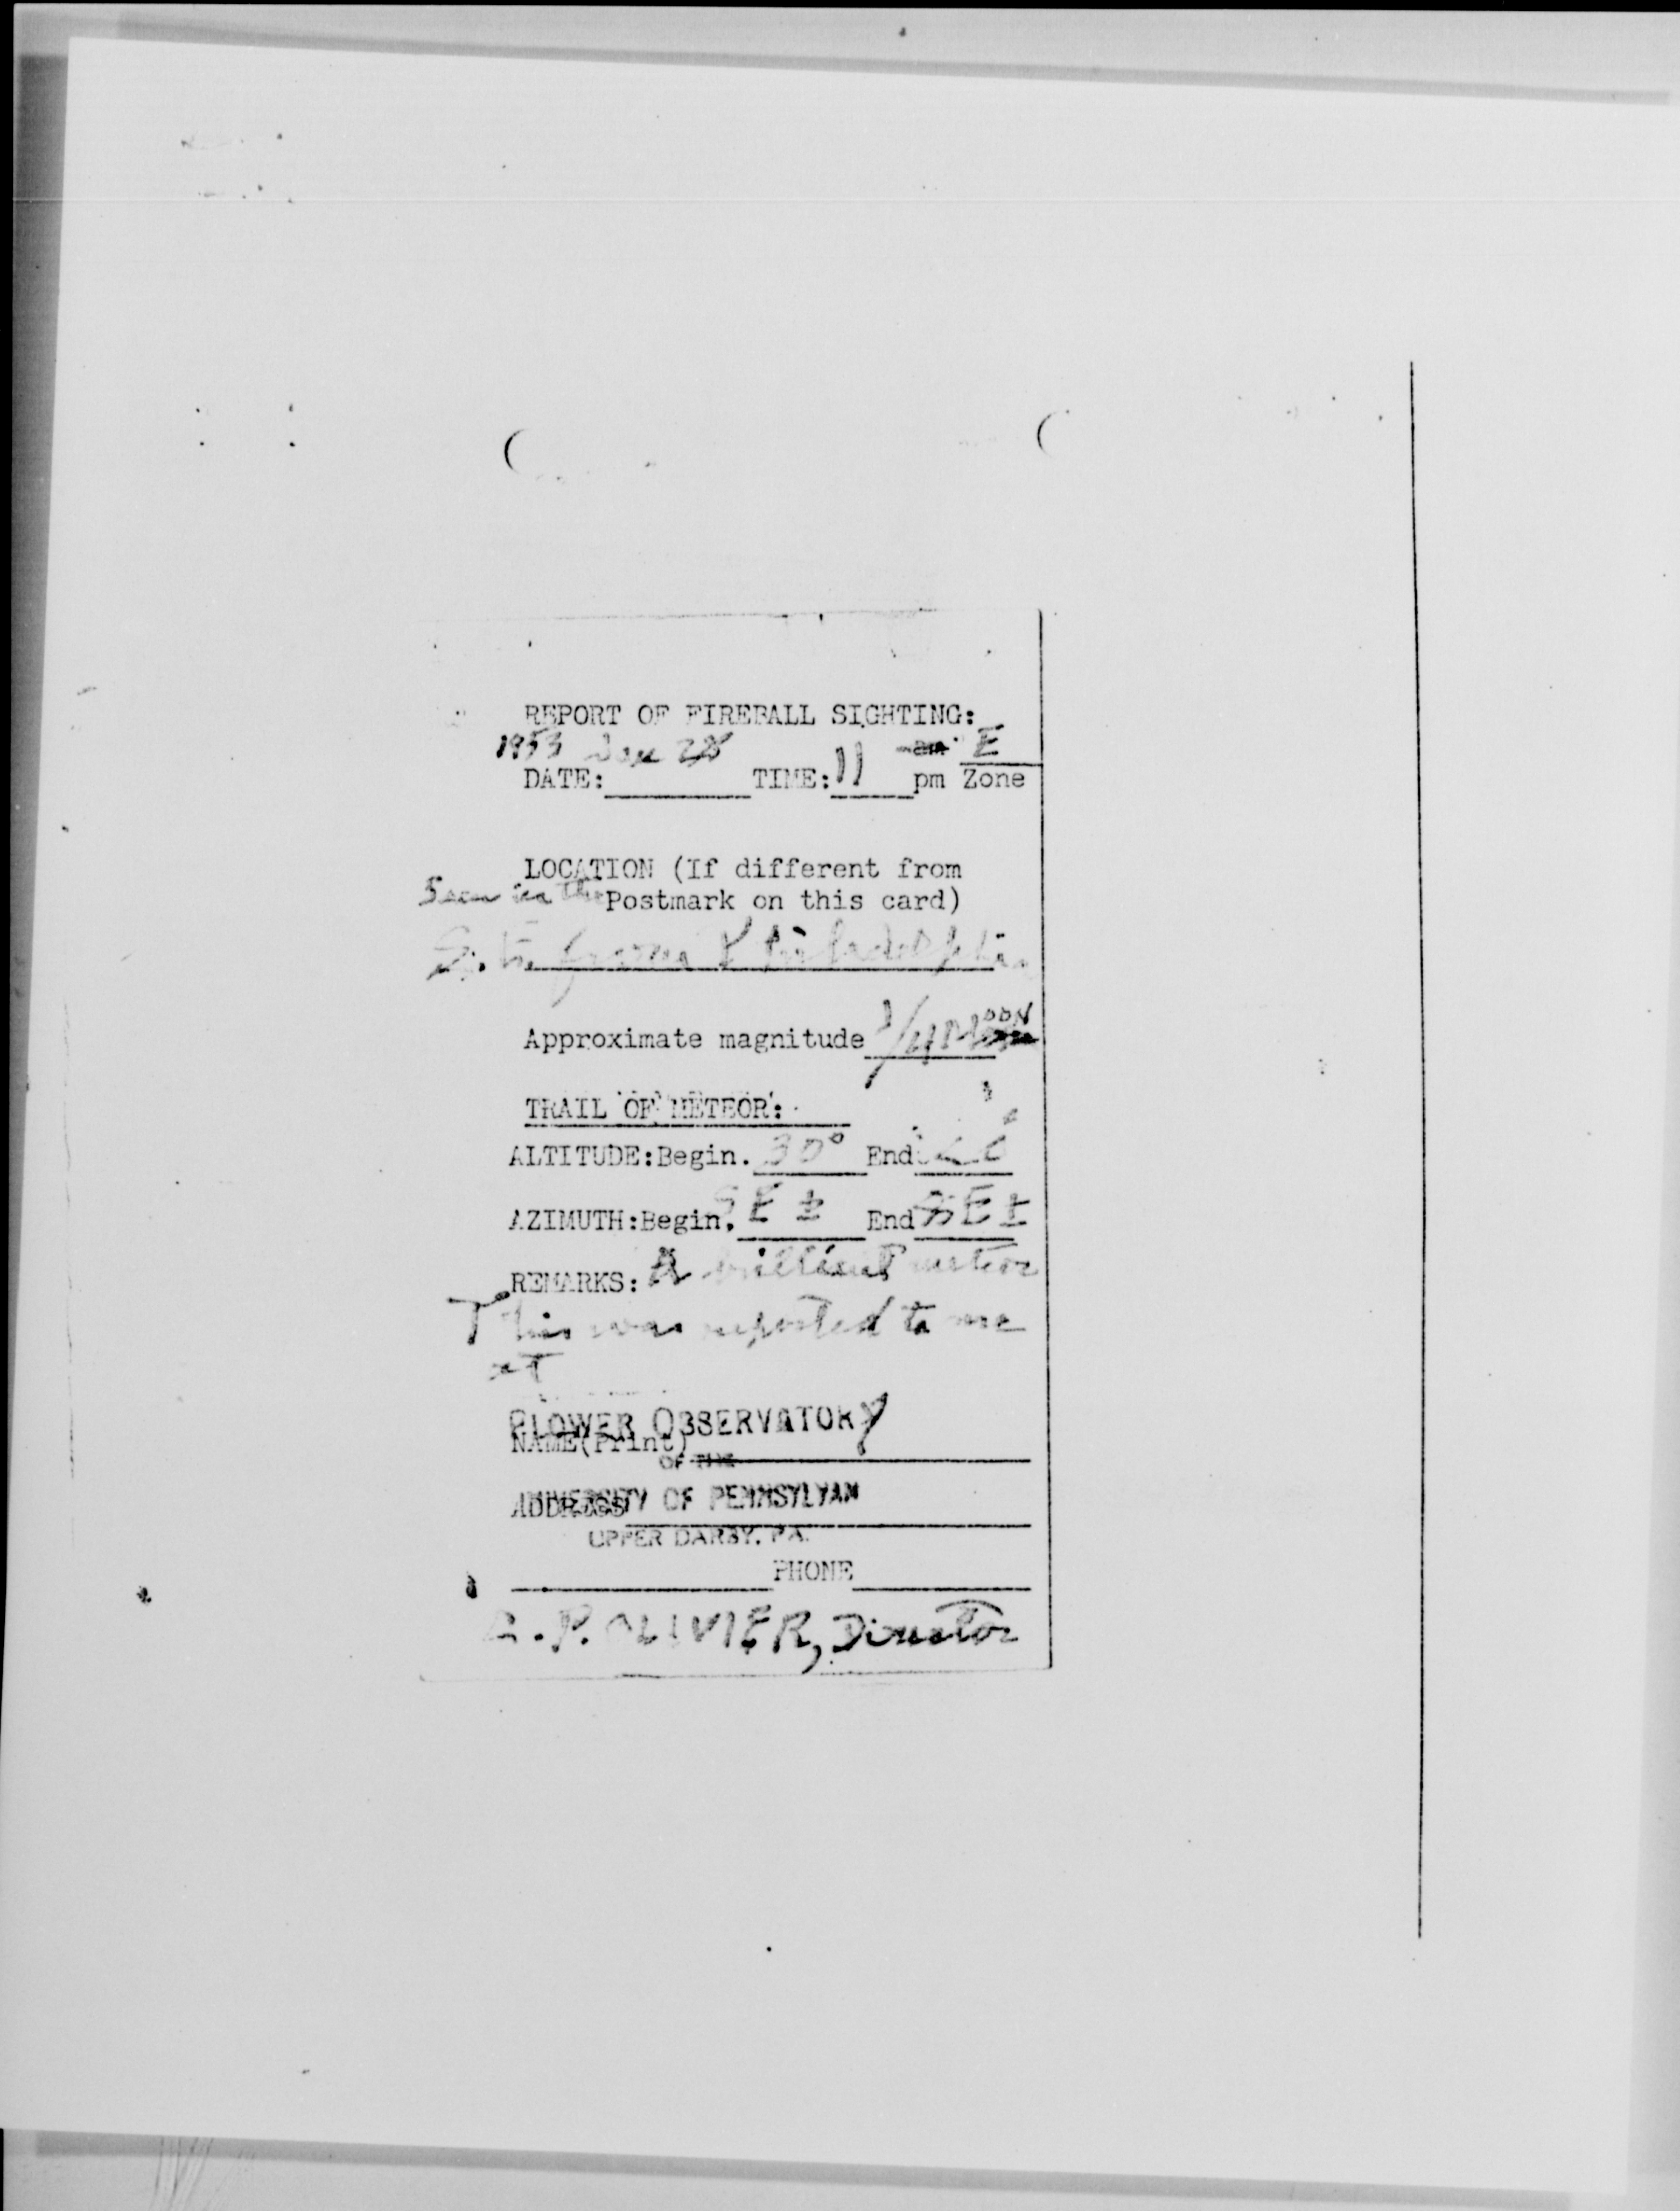 REPORT OF FIREBALL SIGHTING:
1953 Jan 28 am E
DATE: TIME: 11 pm Zone
LOCATION (If different from
Seen in the Postmark on this card)
S.E. from Philadelphia
Approximate magnitude 1/4 MOON
TRAIL OF METEOR:
ALTITUDE: Begin. 30° End
AZIMUTH: Begin. SE ± End SE ±
REMARKS: A brilliant meteor
This was reported to me
at
FLOWER OBSERVATORY
NAME(Print)
OF THE
ADDRESS UNIVERSITY OF PENNSYLVAN
UPPER DARBY, PA.
PHONE
C. P. OLIVIER, Director